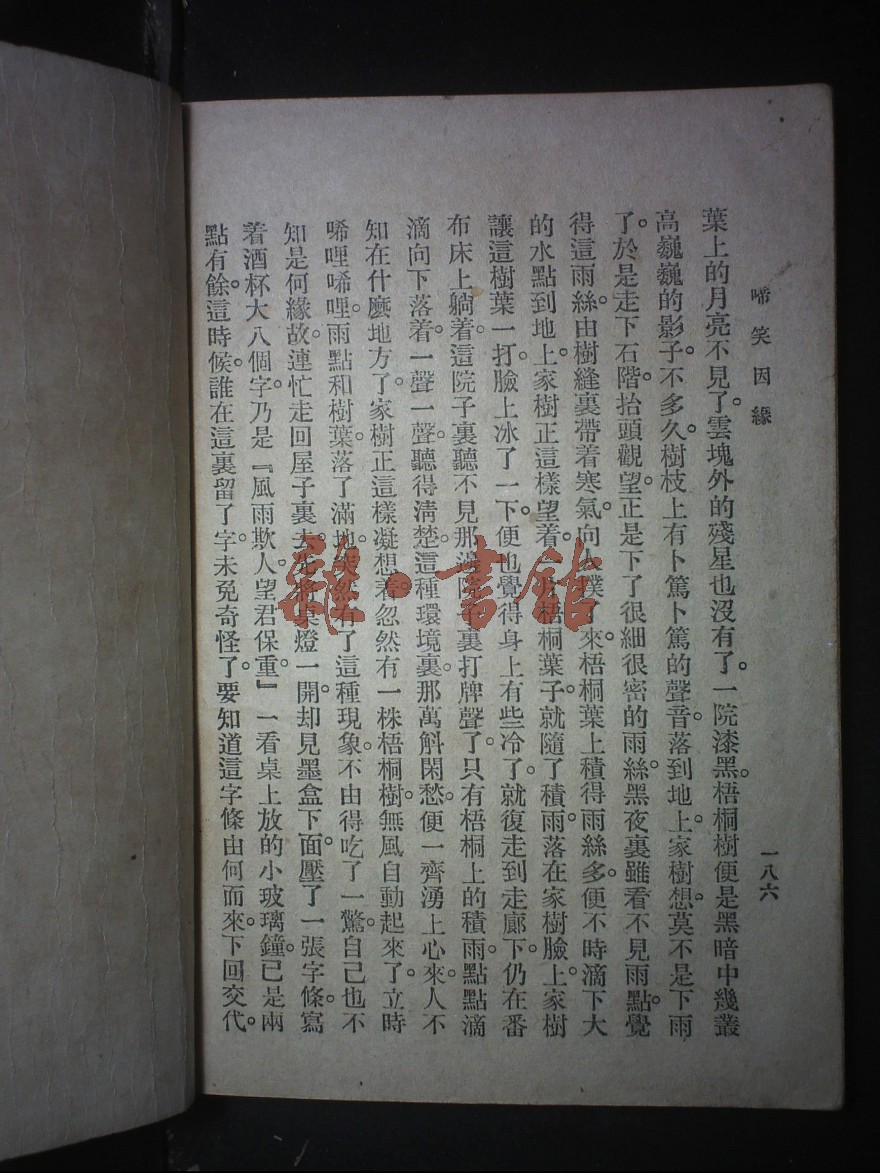 啼笑因緣
一八六
葉上的月亮不見了。雲塊外的殘星也沒有了。一院漆黑。梧桐樹便是黑暗中幾叢
高巍巍的影子。不多久樹枝上有卜篤卜篤的聲音。落到地上。家樹想。莫不是下雨
了。於是走下石階。抬頭觀望。正是下了很細很密的雨絲。黑夜裏雖看不見雨點。覺
得這雨絲。由樹縫裏帶着寒氣。向人撲了來。梧桐葉上積得雨絲多。便不時滴下大
的水點到地上。家樹正這樣望着。一片梧桐葉子。就隨了積雨。落在家樹臉上。家樹
讓這樹葉一打。臉上冰了一下。便也覺得身上有些冷了。就復走到走廊下。仍在番
布床上躺着。這院子裏聽不見那邊院子裏打牌聲了。只有梧桐上的積雨。點點滴
滴向下落着。一聲一聲。聽得清楚。這種環境裏。那萬斛閑愁。便一齊湧上心來。人不
知在什麼地方了。家樹正這樣凝想着。忽然有一株梧桐樹。無風自動起來了。立時
唏哩唏哩。雨點和樹葉。落了滿地。突然有了這種現象。不由得吃了一驚。自己也不
知是何緣故。連忙走回屋子裏去。先將桌燈一開。却見墨盒下面。壓了一張字條。寫
着酒杯大八個字。乃是『風雨欺人。望君保重。』一看桌上放的小玻璃鐘。已是兩
點有餘。這時候。誰在這裏留了字。未免奇怪了。要知道這字條由何而來。下回交代。
雜·書館